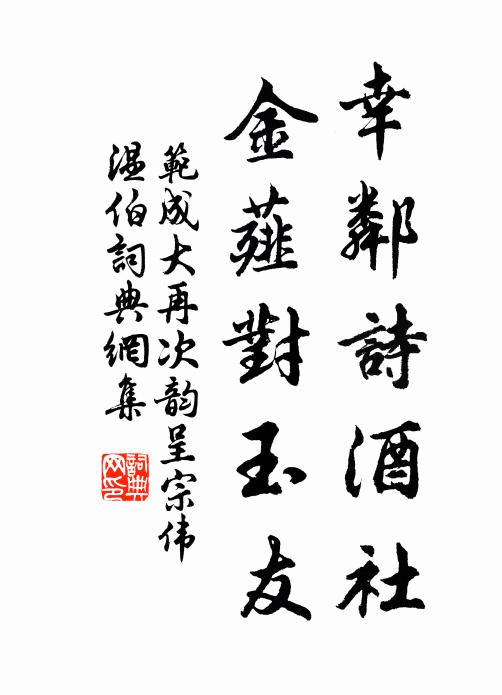 幸鄰詩酒社
金薤對玉友
範成大再次韵呈宗伟
温伯詞典網集
詞典网印